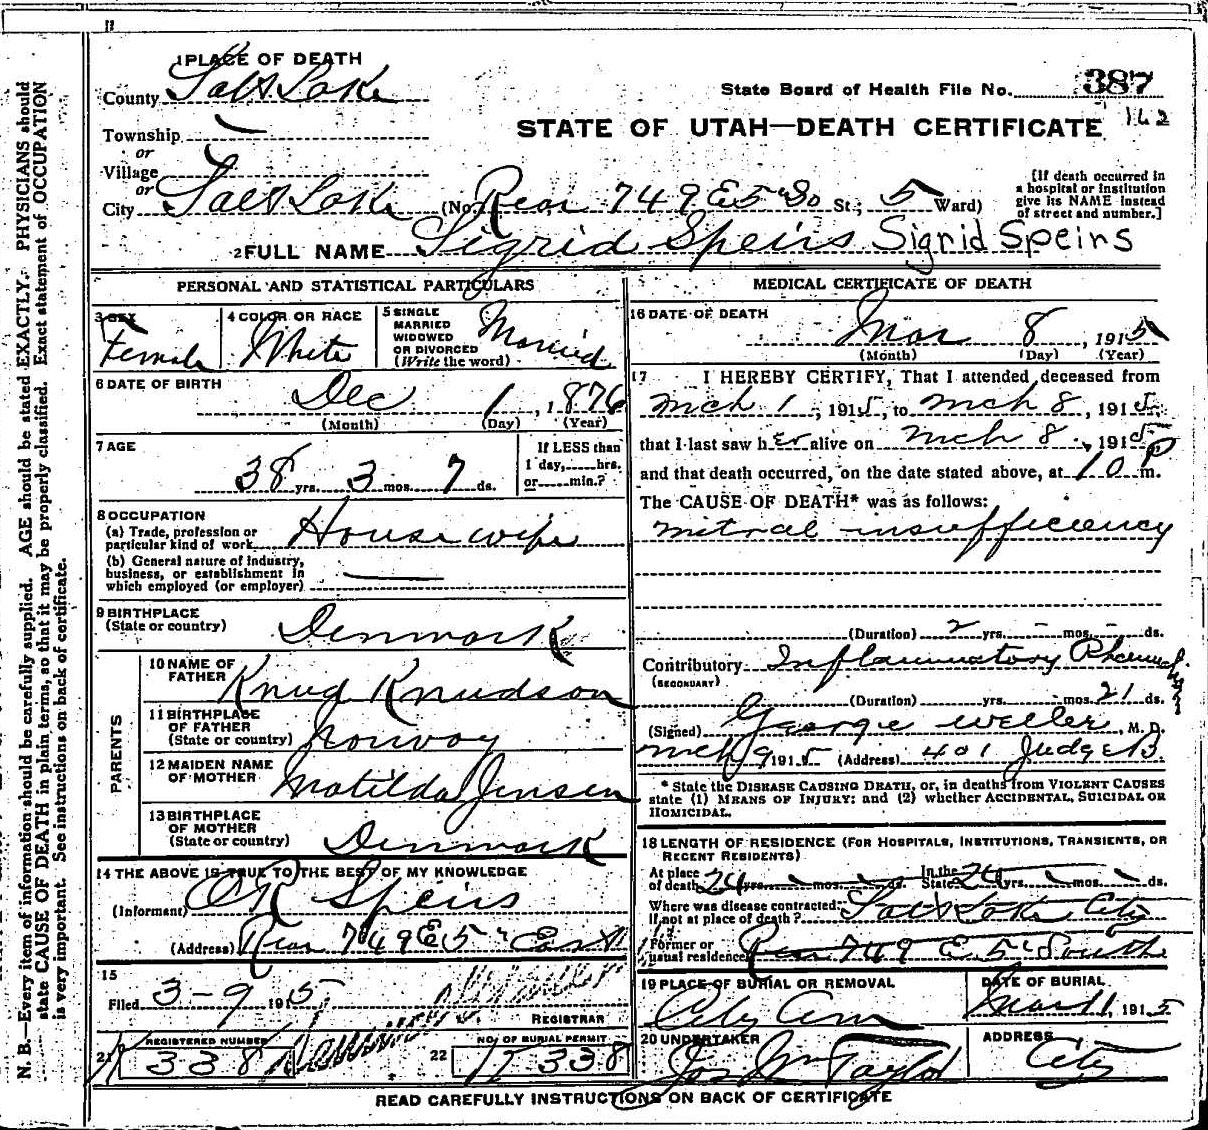 1 PLACE OF DEATH
County Salt Lake
State Board of Health File No. 387
162
STATE OF UTAH—DEATH CERTIFICATE
Township
or
Village
or
City Salt Lake (No. Rear 749 E 5" So St.; 5 Ward)
[If death occurred in
a hospital or institution
give its NAME instead
of street and number.]
2 FULL NAME Sigrid Speirs Sigrid Speirs
PERSONAL AND STATISTICAL PARTICULARS
3 SEX
Female
4 COLOR OR RACE
White
5 SINGLE
MARRIED
WIDOWED
OR DIVORCED
(Write the word)
Married
6 DATE OF BIRTH
Dec 1, 1876
(Month) (Day) (Year)
7 AGE
38 yrs. 3 mos. 7 ds.
If LESS than
1 day, hrs.
or min.?
8 OCCUPATION
(a) Trade, profession or
particular kind of work Housewife
(b) General nature of industry,
business, or establishment in
which employed (or employer)
9 BIRTHPLACE
(State or country) Denmark
PARENTS
10 NAME OF
FATHER Knud Knudson
11 BIRTHPLACE
OF FATHER
(State or country) Norway
12 MAIDEN NAME
OF MOTHER Matilda Jensen
13 BIRTHPLACE
OF MOTHER
(State or country) Denmark
14 THE ABOVE IS TRUE TO THE BEST OF MY KNOWLEDGE
(Informant) Speirs
(Address) Rear 749 E 5" East
15
Filed 3-9 1915
REGISTRAR
21 REGISTERED NUMBER
338
22 NO. OF BURIAL PERMIT
338
MEDICAL CERTIFICATE OF DEATH
16 DATE OF DEATH
Mar 8, 1915
(Month) (Day) (Year)
17 I HEREBY CERTIFY, That I attended deceased from
Mch 1, 1915, to Mch 8, 1915
that I last saw her alive on Mch 8, 1915
and that death occurred, on the date stated above, at 10 P m.
The CAUSE OF DEATH* was as follows:
Mitral insufficiency
(Duration) 2 yrs. - mos. - ds.
Contributory Inflammatory Rheumatism
(SECONDARY)
(Duration) yrs. mos. 21 ds.
(Signed) George Weller, M. D.
Mch 9 1915 (Address) 401 Judge B.
* State the DISEASE CAUSING DEATH, or, in deaths from VIOLENT CAUSES
state (1) MEANS OF INJURY; and (2) whether ACCIDENTAL, SUICIDAL OR
HOMICIDAL.
18 LENGTH OF RESIDENCE (FOR HOSPITALS, INSTITUTIONS, TRANSIENTS, OR
RECENT RESIDENTS)
At place
of death 24 yrs. mos. ds. In the
State 24 yrs. mos. ds.
Where was disease contracted,
if not at place of death? Salt Lake City
Former or
usual residence Rear 749 E 5" South
19 PLACE OF BURIAL OR REMOVAL
City Cem
DATE OF BURIAL
Mar 11, 1915
20 UNDERTAKER
Jos Wm Taylor
ADDRESS
City
READ CAREFULLY INSTRUCTIONS ON BACK OF CERTIFICATE
N. B.—Every item of information should be carefully supplied. AGE should be stated EXACTLY. PHYSICIANS should
state CAUSE OF DEATH in plain terms, so that it may be properly classified. Exact statement of OCCUPATION
is very important. See instructions on back of certificate.